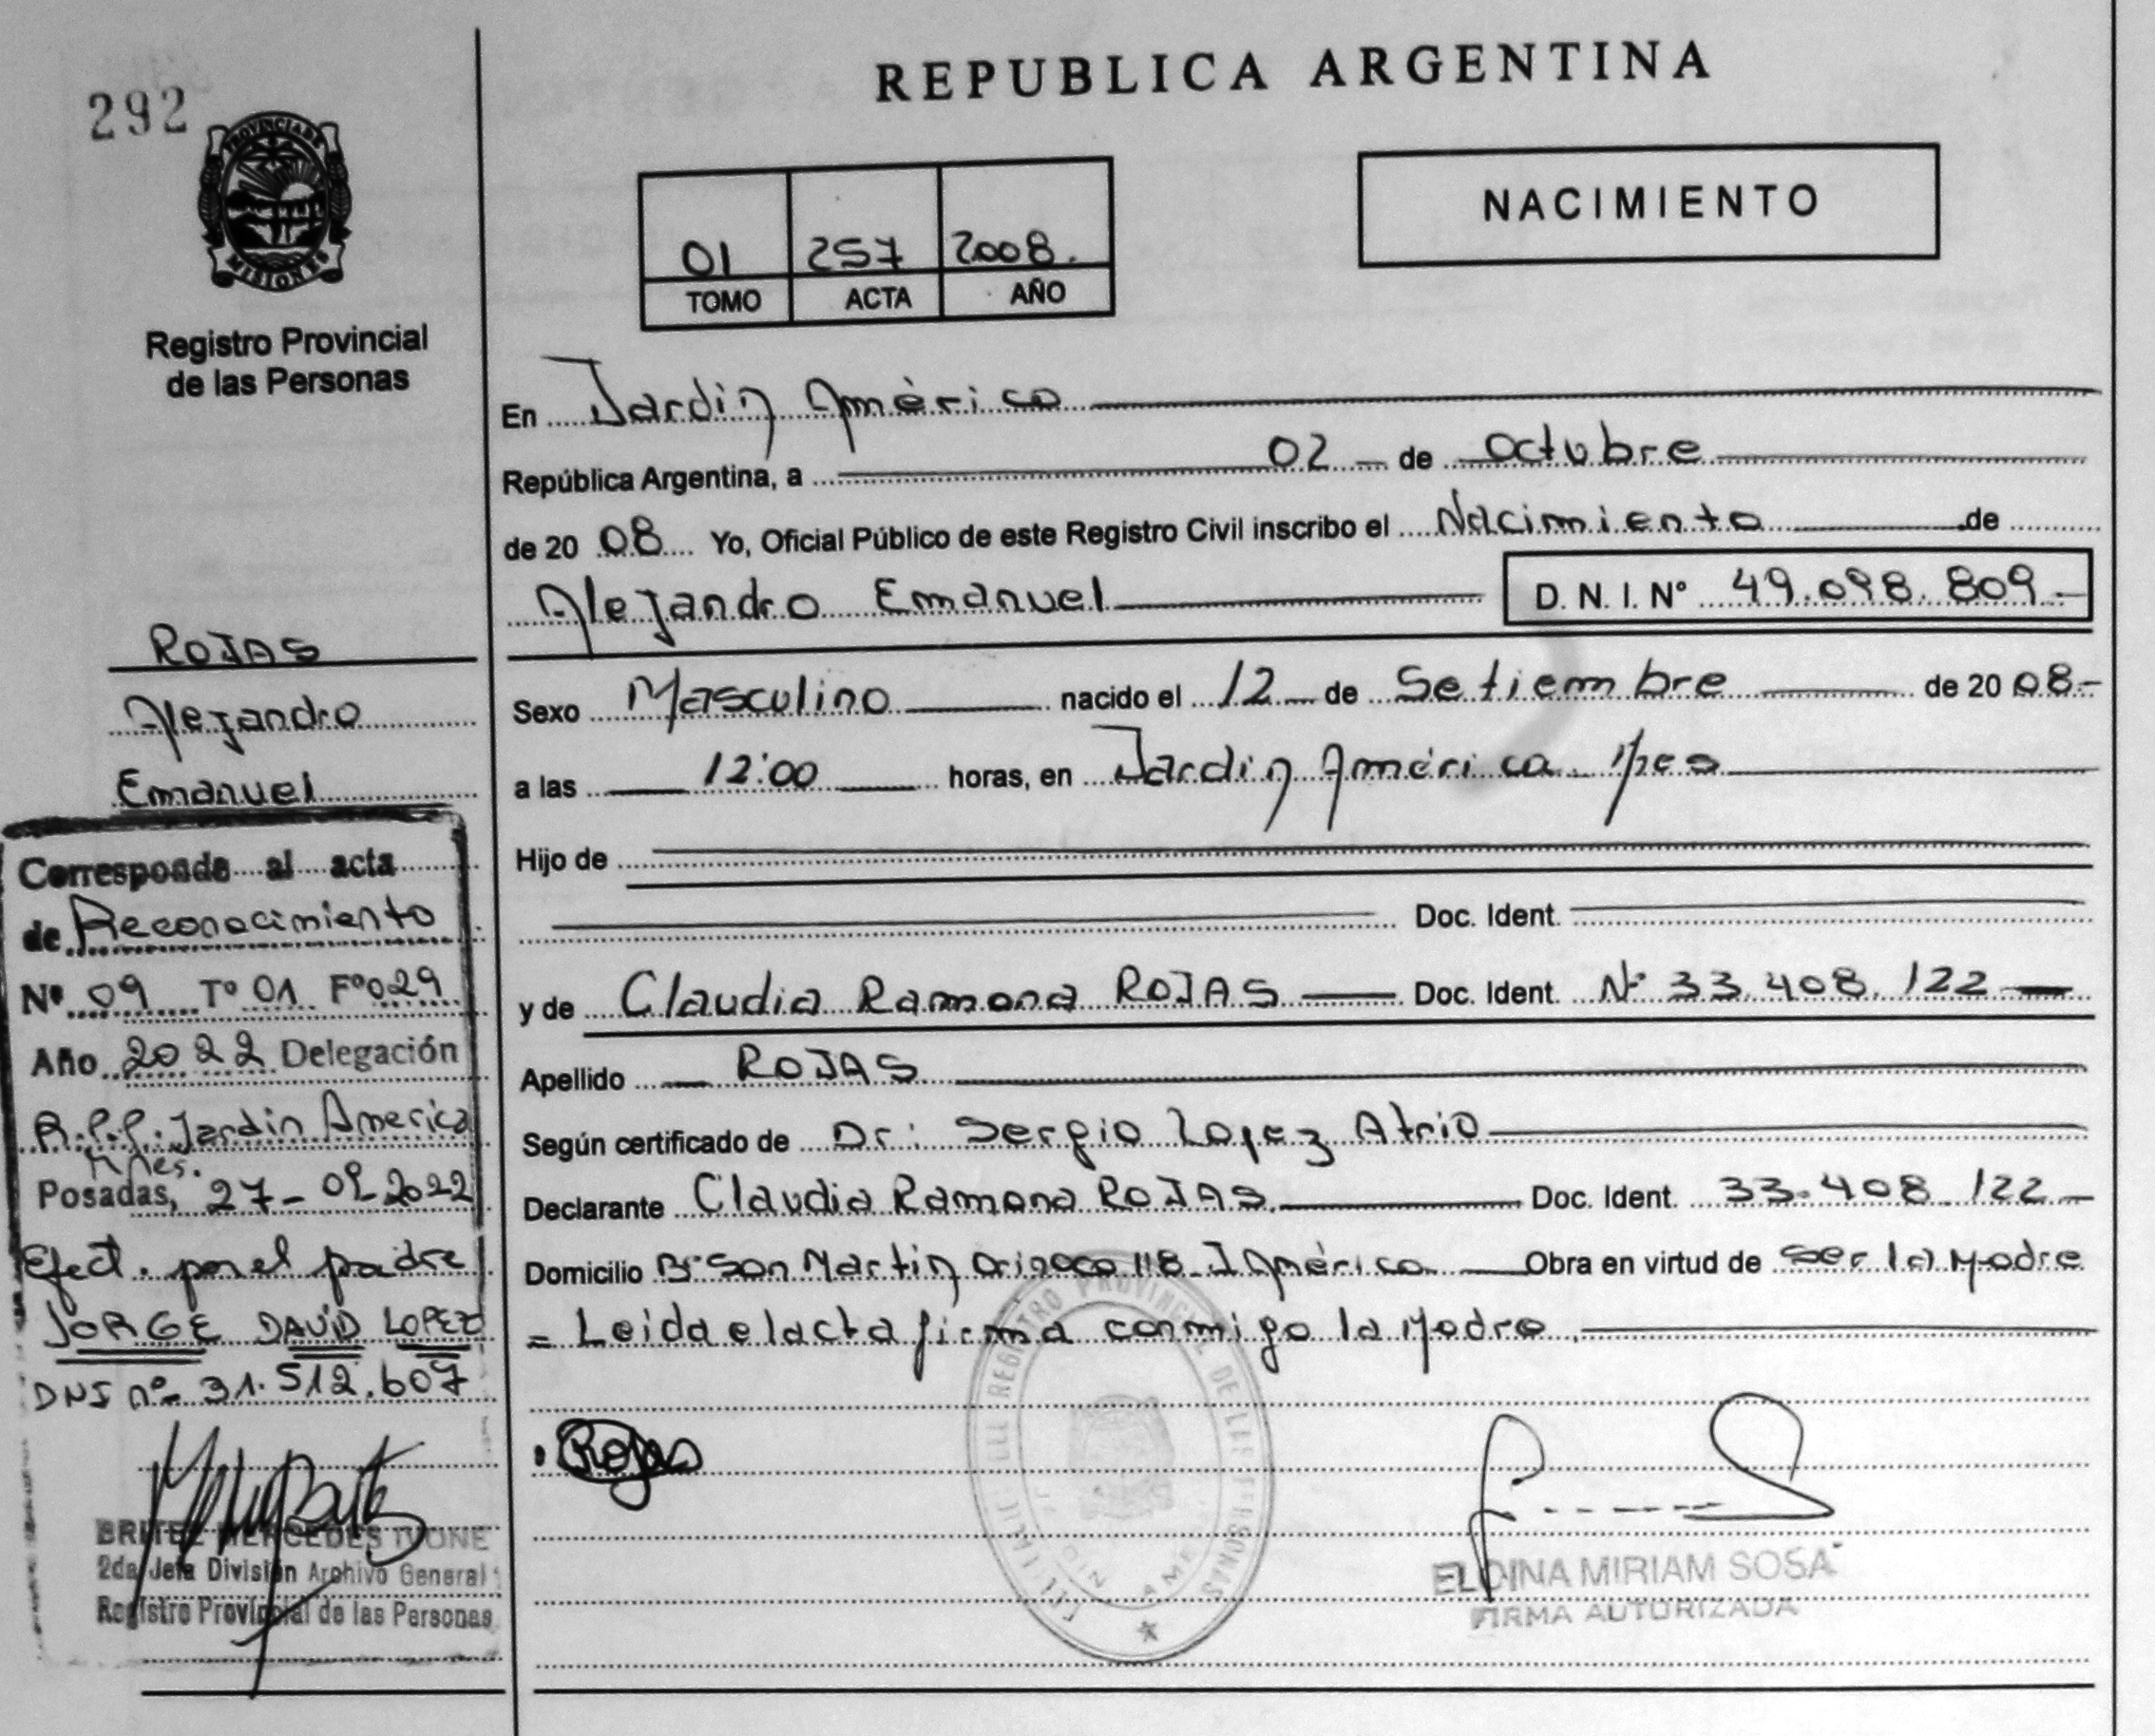 292
PROVINCIA DE
MISIONES
Registro Provincial
de las Personas
ROJAS
Alejandro
Emanuel
Corresponde al acta
de Reconocimiento
Nº 09 Tº 01 Fº 029
Año 2022 Delegación
R.P.P. Jardin America
Mnes.
Posadas, 27-09-2022
Efect. por el padre
JORGE DAVID LOPEZ
DNI nº 31.512.607
BRITEZ MERCEDES IVONE
2da Jefa División Archivo General
Registro Provincial de las Personas
REPUBLICA ARGENTINA
NACIMIENTO
01 257 2008.
TOMO ACTA AÑO
En Jardin América
República Argentina, a 02 de octubre
de 20 08 Yo, Oficial Público de este Registro Civil inscribo el Nacimiento de
Alejandro Emanuel D. N. I. Nº 49.098.809.-
Sexo Masculino nacido el 12 de Setiembre de 20 08-
a las 12:00 horas, en Jardin América
Hijo de
Doc. Ident.
y de Claudia Ramona ROJAS Doc. Ident. Nº 33.408.122
Apellido ROJAS
Según certificado de Dr: Sergio Lopez Atrio
Declarante Claudia Ramona ROJAS Doc. Ident. 33.408.122
Domicilio Bº San Martin Orinoco 118 J América Obra en virtud de ser la Madre
= Leida el acta firma conmigo la Madre.
Rojas
REGISTRO PROVINCIAL DE LAS PERSONAS
ELDINA MIRIAM SOSA
FIRMA AUTORIZADA